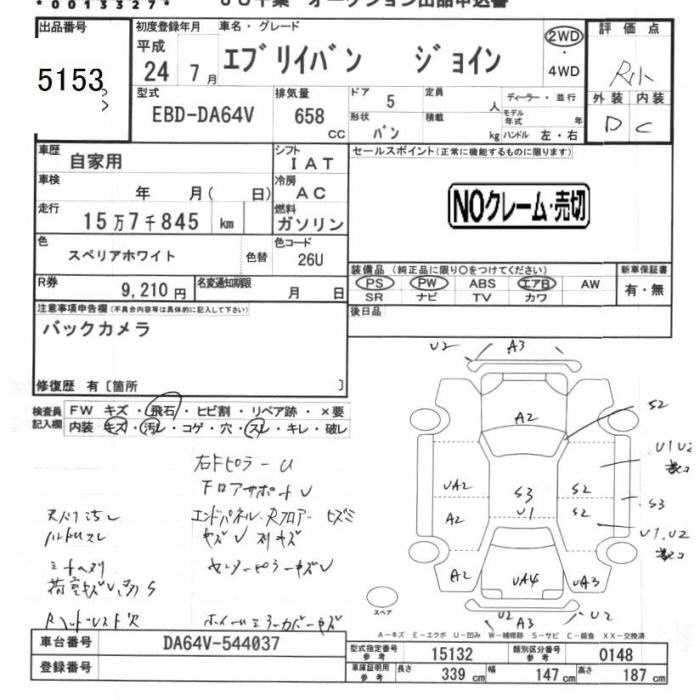 *00133327*
JU千葉 オークション出品申込書
出品番号 5153
初度登録年月 平成 24 7月
車名・グレード エブリイバン ジョイン
2WD・4WD
評価点 R小
外装 D 内装 C
型式 EBD-DA64V
排気量 658 CC
ドア 5
定員 人
形状 バン
積載 kg
ディーラー・並行
モデル年式 年
ハンドル 左・右
車歴 自家用
シフト IAT
セールスポイント(正常に機能するものに限ります)
車検 年 月( 日)
冷房 AC
NOクレーム・売切
走行 15万7千845 km
燃料 ガソリン
色 スペリアホワイト 色替
色コード 26U
装備品(純正品に限り○をつけてください)
新車保証書 有・無
PS PW ABS エアB AW
SR ナビ TV カワ
R券 9,210円
名変通知期限 月 日
後日品
注意事項申告欄(不具合内容等は具体的に記入して下さい)
バックカメラ
修復歴 有〔箇所 〕
検査員記入欄
FW キズ・飛石・ヒビ割・リペア跡・×要
内装 キズ・汚レ・コゲ・穴・スレ・キレ・破レ
U2 A3
A2 S2
U1 U2
UA2 S3 S2 S3
A2 U1 S2
U1.U2
A2 UA4 UA3
U2 A3 U2
右Fピラー U
Fロアサポート U
エンドパネル、Rフロアー ヒズミ
センターピラーキズU
スペア
A-キズ E-エクボ U-凹み W-補修跡 S-サビ C-腐食 XX-交換済
車台番号 DA64V-544037
登録番号
型式指定番号 参考 15132
類別区分番号 参考 0148
車庫証明用 参考 長さ 339 cm 幅 147 cm 高さ 187 cm